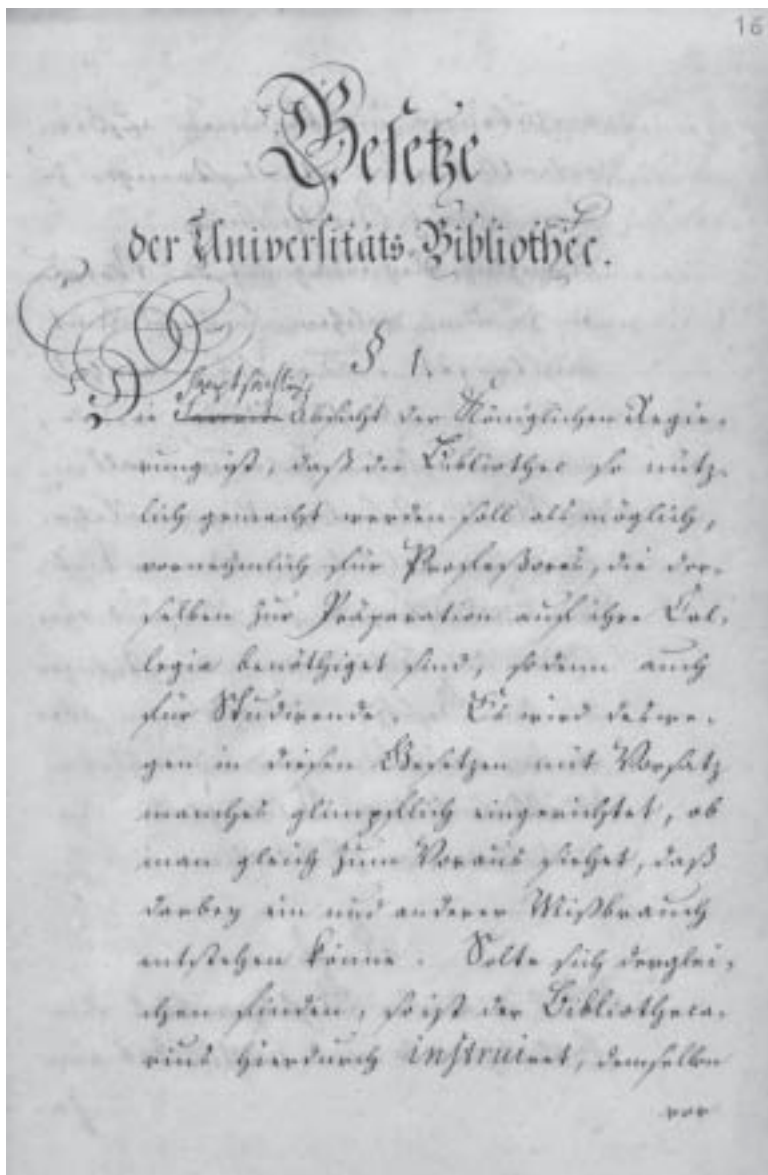 16
Gesetze
der Universitäts-Bibliothec.
§ 1.
hauptsächlich
Die Absicht der Königlichen Regie-
rung ist, daß die Bibliothec so nütz-
lich gemacht werden soll als möglich,
vornehmlich für Professores, die der-
selben zur Präparation auf ihre Col-
legia benöthiget sind, sodenn auch
für Studirende. Es wird deswe-
gen in diesen Gesetzen mit Vorsatz
manches glimpflich eingerichtet, ob
man gleich zum Voraus siehet, daß
darbey ein und anderer Mißbrauch
entstehen könne. Solte sich derglei-
chen finden, so ist der Bibliotheca-
rius hierdurch instruiret, demselben
vor